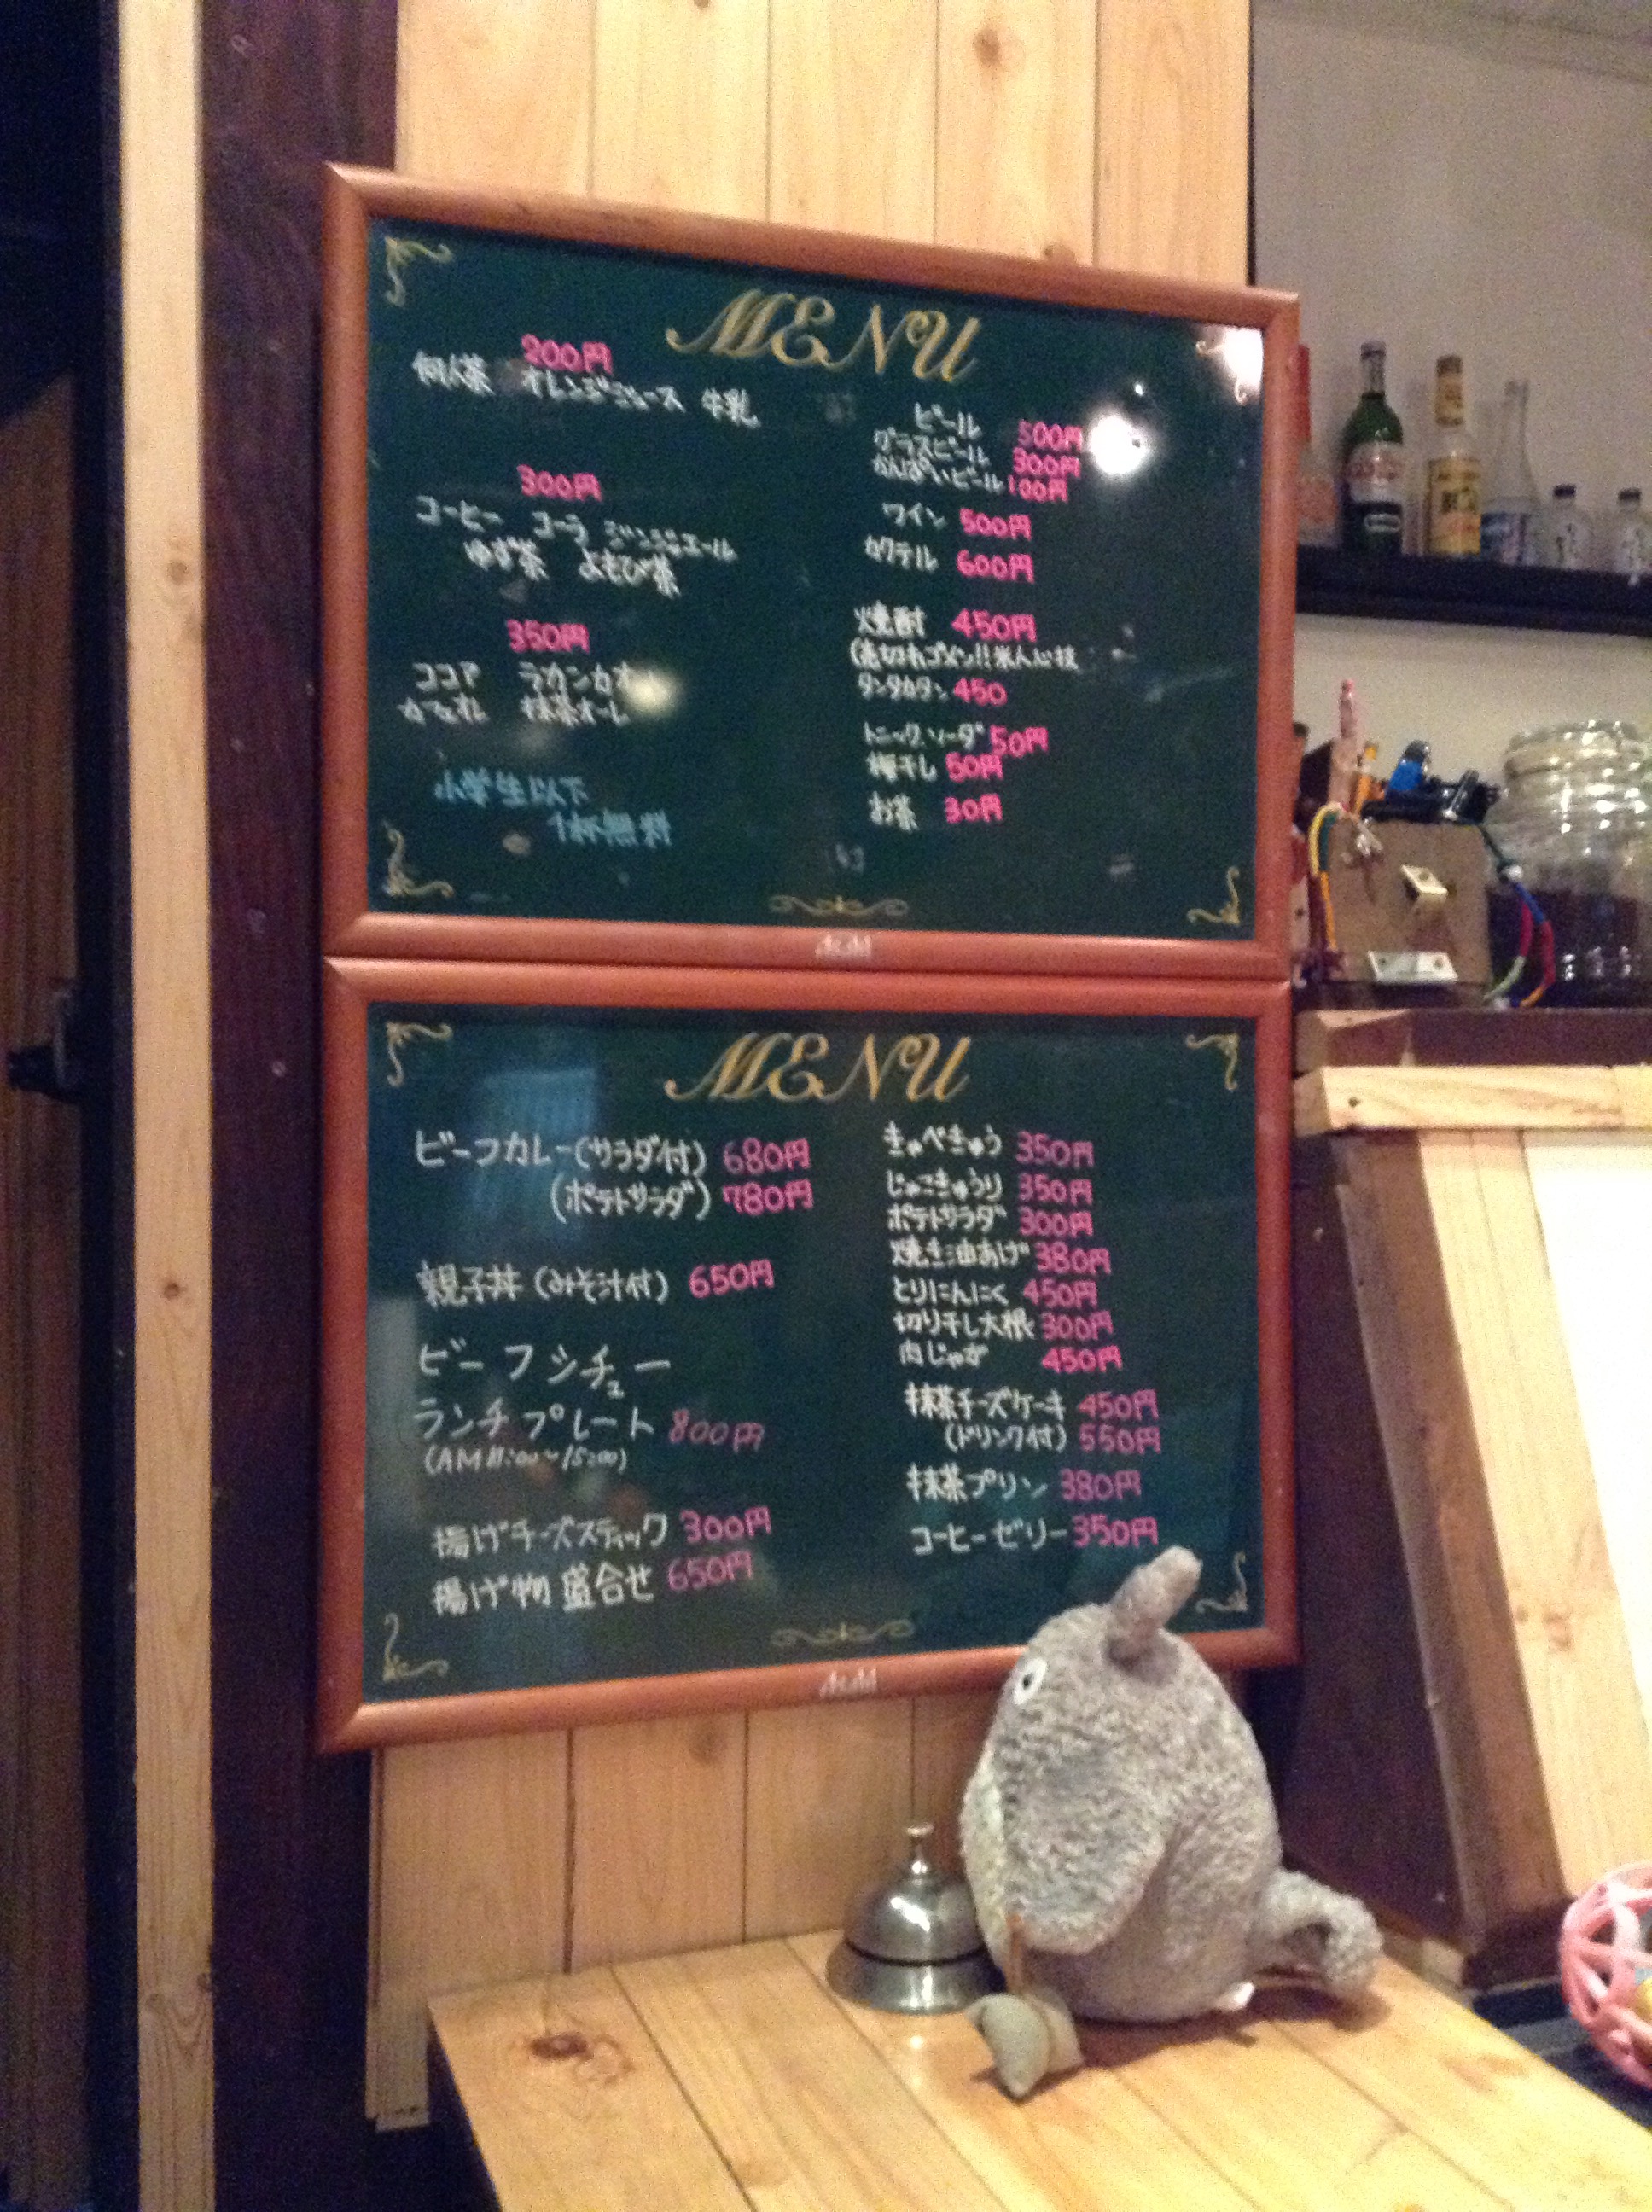 MENU
200円
オレンジジュース 牛乳
300円
コーヒー コーラ ジンジャエール
ゆず茶 よもぎ茶
350円
ココア ラカンカオーレ
カフェオレ 抹茶オーレ
小学生以下
1杯無料
ビール 500円
グラスビール 300円
かんぱいビール 100円
ワイン 500円
カクテル 600円
焼酎 450円
(売切れゴメン!!
タンタカタン 450
トニック,ソーダ 50円
梅干し 50円
お茶 30円
Asahi
MENU
ビーフカレー(サラダ付) 680円
(ポテトサラダ) 780円
親子丼(みそ汁付) 650円
ビーフシチュー
ランチプレート 800円
(AM11:00~15:00)
揚げチーズスティック 300円
揚げ物盛合せ 650円
きゅべきゅう 350円
じゃこきゅうり 350円
ポテトサラダ 300円
焼き油あげ 380円
とりにんにく 450円
切り干し大根 300円
肉じゃが 450円
抹茶チーズケーキ 450円
(ドリンク付) 550円
抹茶プリン 380円
コーヒーゼリー 350円
Asahi